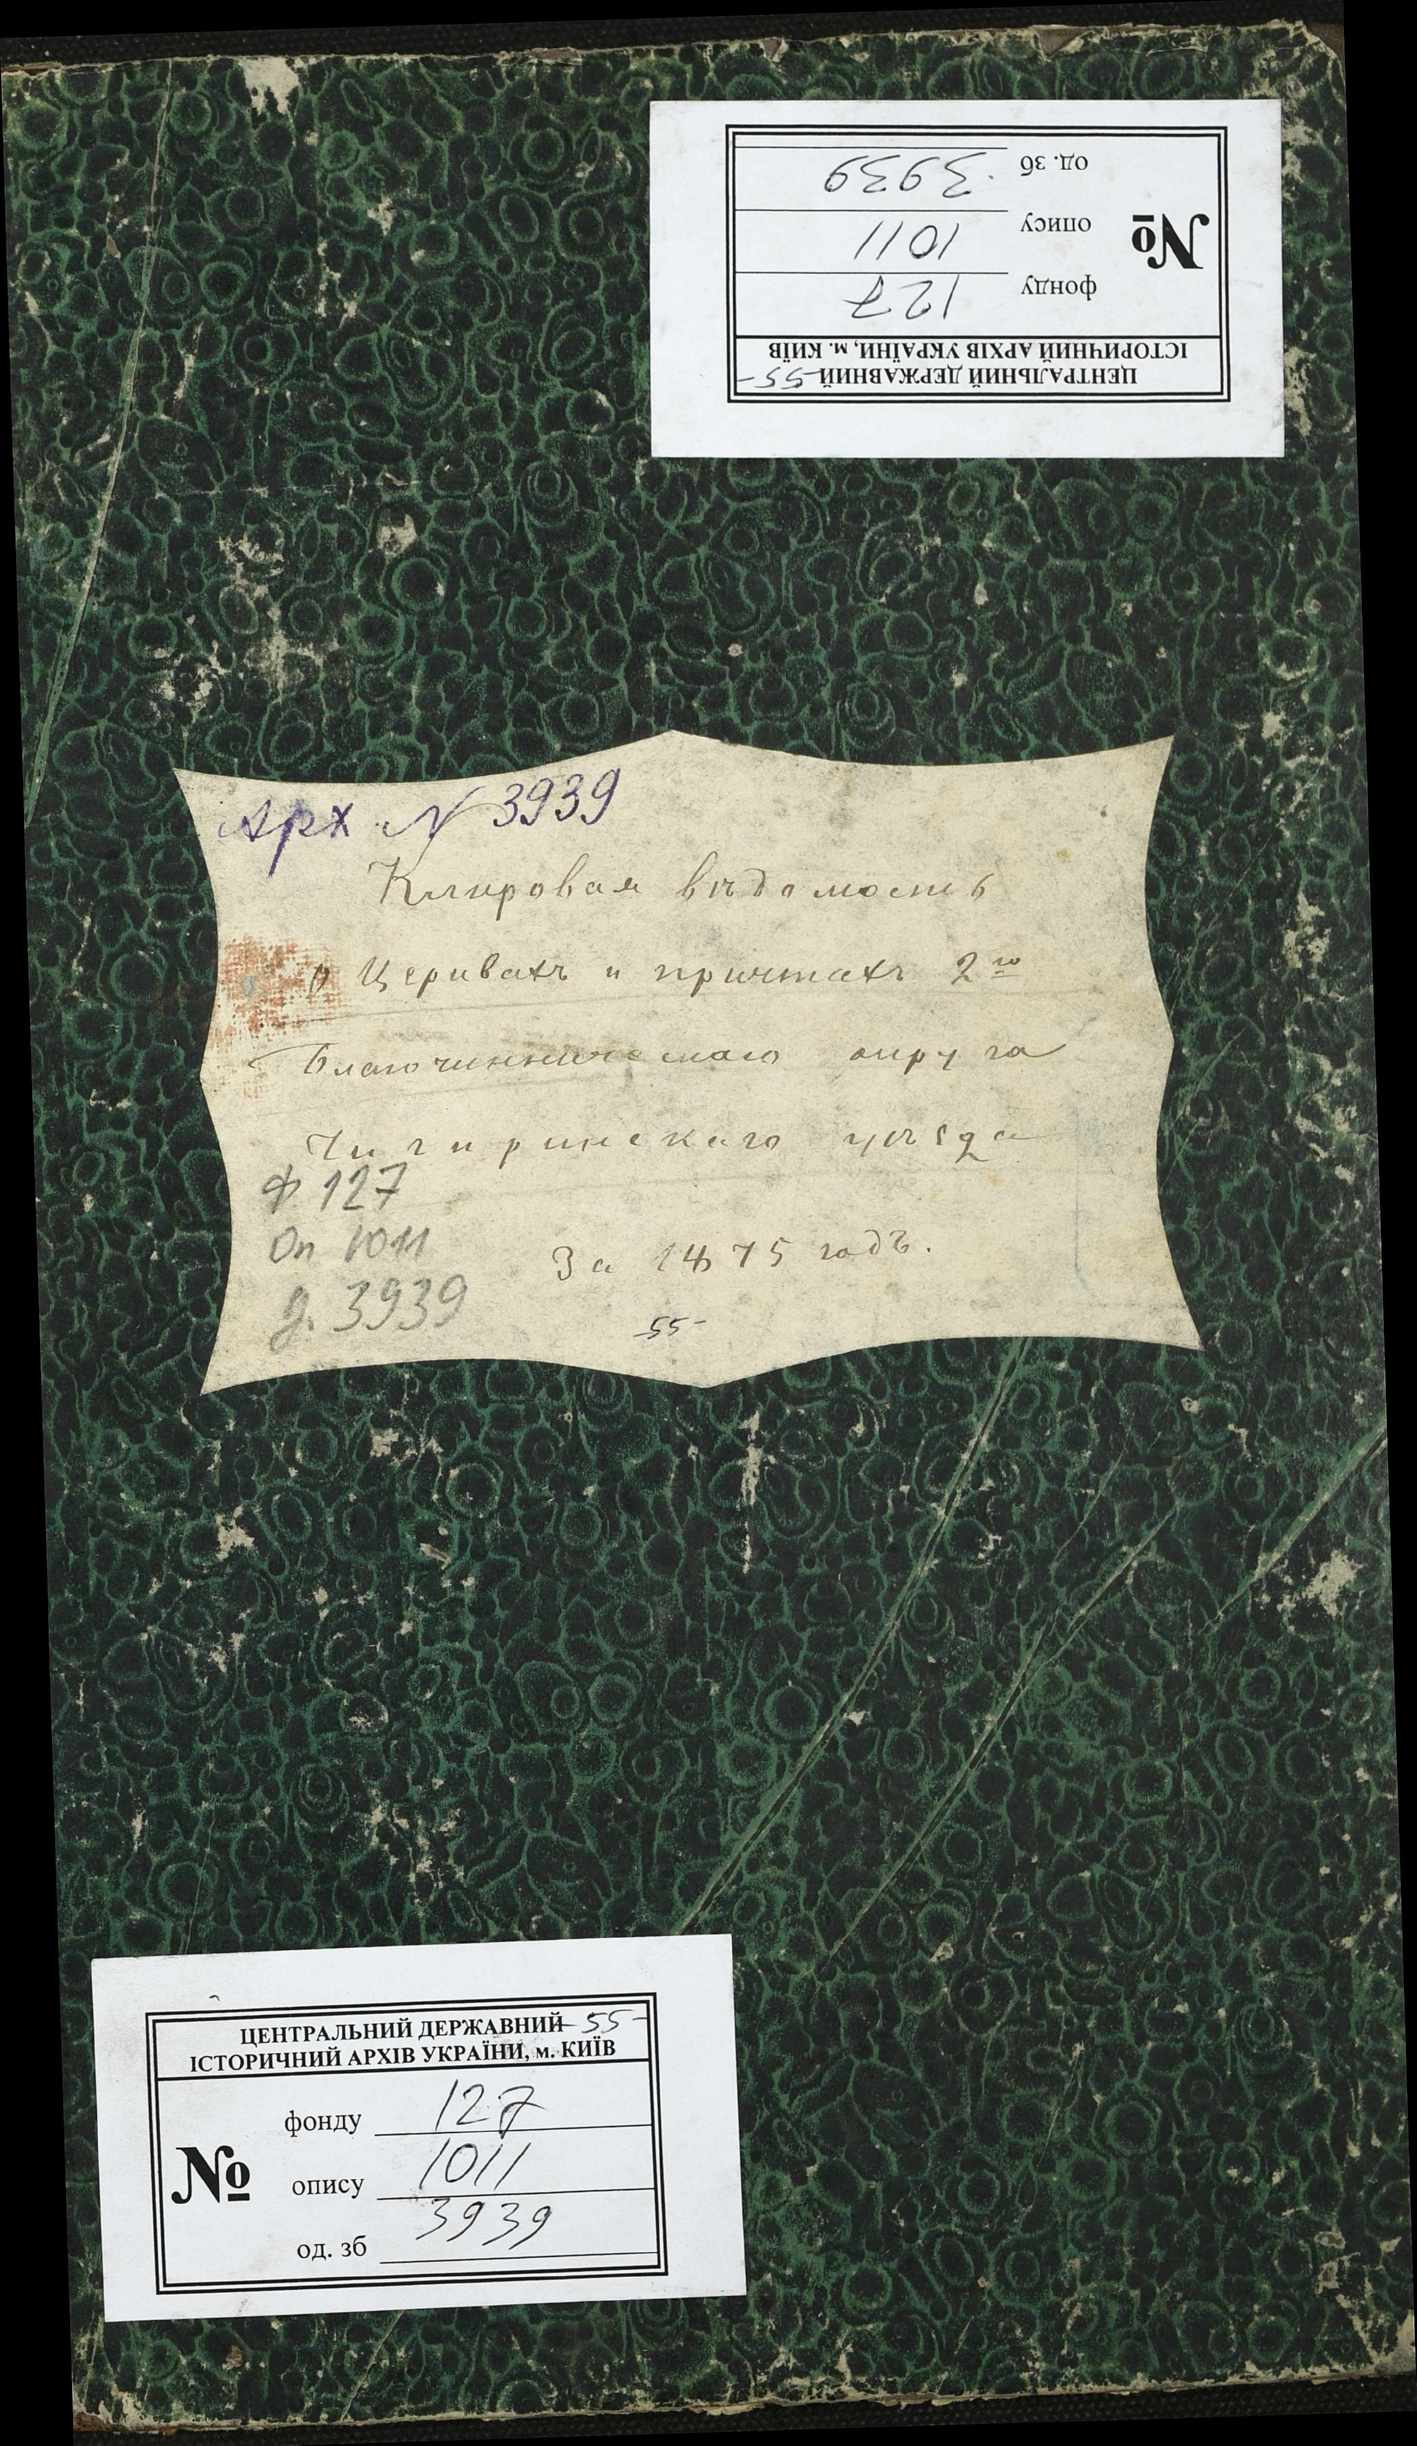 ЦЕНТРАЛЬНИЙ ДЕРЖАВНИЙ -55-
ІСТОРИЧНИЙ АРХІВ УКРАЇНИ, м. КИЇВ
№
фонду 127
опису 1011
од. зб 3939
Арх N 3939
Клировая вѣдомость
о Церквахъ и причтахъ 2го
Благочинническаго округа
Чигиринскаго уѣзда
Ф 127
Оп 1011
За 1875 годъ.
д. 3939
-55-
ЦЕНТРАЛЬНИЙ ДЕРЖАВНИЙ -55-
ІСТОРИЧНИЙ АРХІВ УКРАЇНИ, м. КИЇВ
№
фонду 127
опису 1011
од. зб 3939